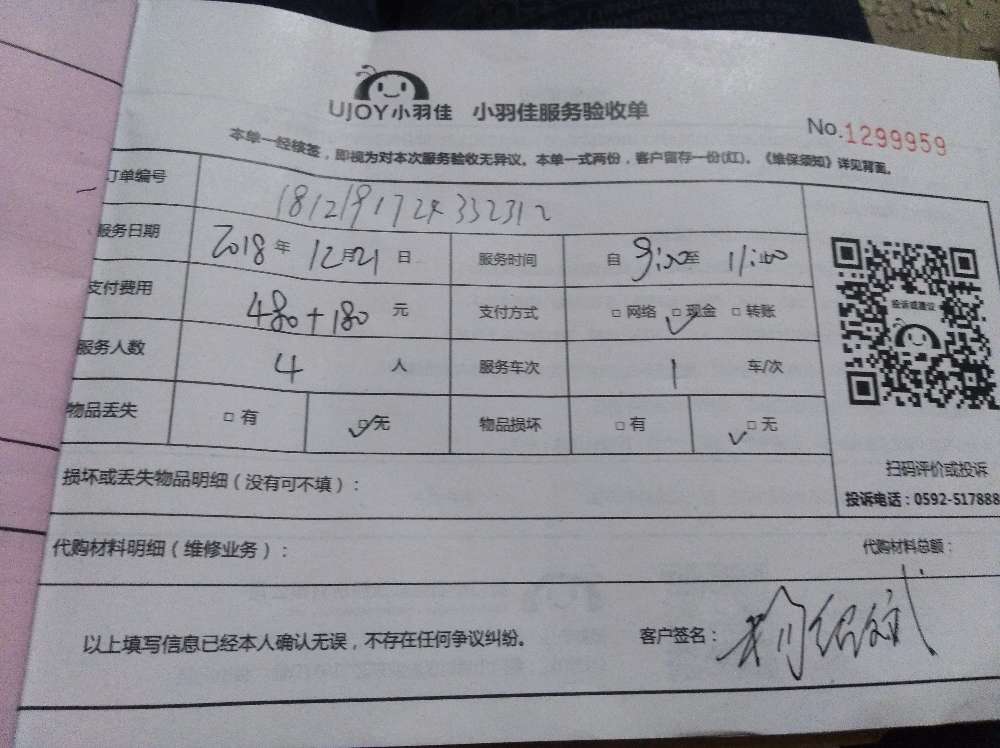 UJOY小羽佳 小羽佳服务验收单
No.1299959
本单一经核签，即视为对本次服务验收无异议。本单一式两份，客户留存一份(红)。《维保须知》详见背面。
订单编号 1812191724332312
服务日期 2018年12月21日 服务时间 自9:00至11:00
支付费用 480+180元 支付方式 □网络 □现金 □转账
服务人数 4人 服务车次 1车/次
物品丢失 □有 □无 物品损坏 □有 □无
投诉或建议
扫码评价或投诉
投诉电话：0592-517888
损坏或丢失物品明细（没有可不填）：
代购材料明细（维修业务）： 代购材料总额：
以上填写信息已经本人确认无误，不存在任何争议纠纷。 客户签名：